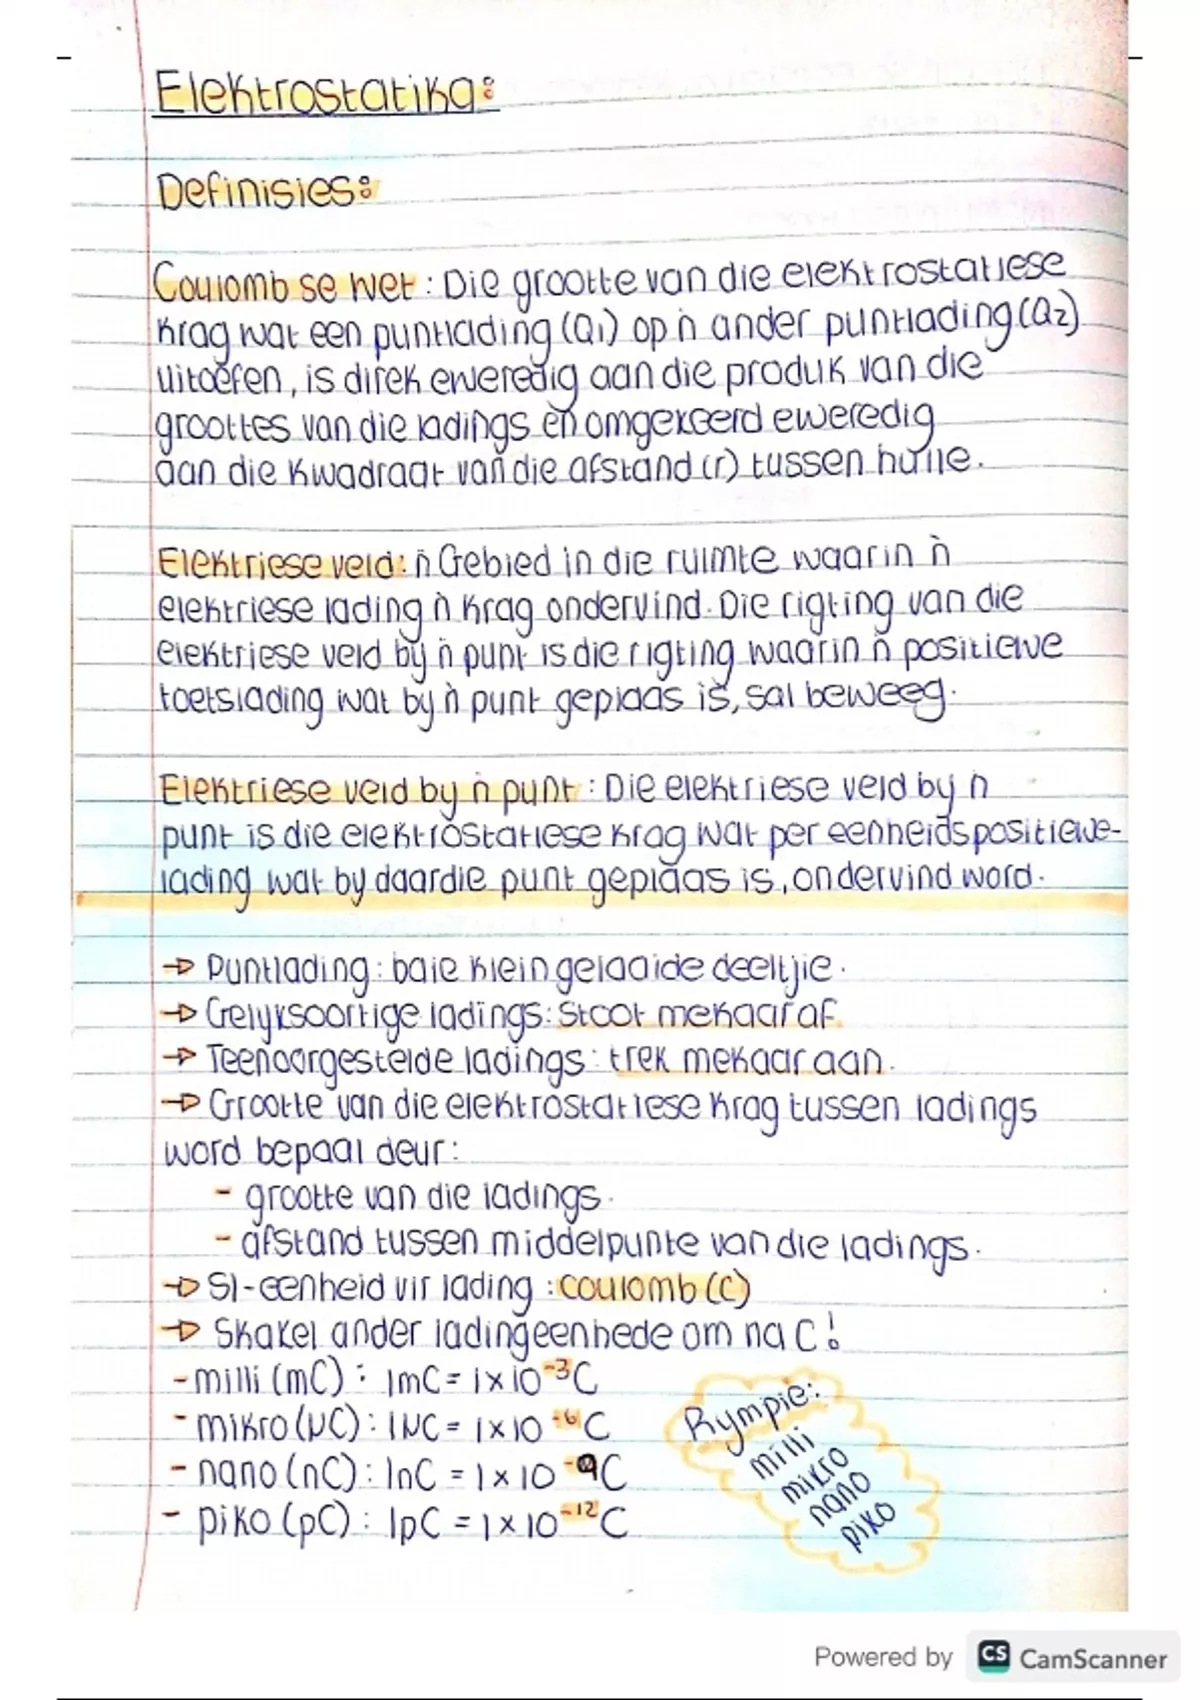 Elektrostatika:
Definisies:
Coulomb se wet : Die grootte van die elektrostatiese
krag wat een puntlading (Q1) op 'n ander puntlading (Q2)
uitoefen, is direk eweredig aan die produk van die
groottes van die ladings en omgekeerd eweredig
aan die kwadraat van die afstand (r) tussen hulle.
Elektriese veld: 'n Gebied in die ruimte waarin 'n
elektriese lading 'n krag ondervind. Die rigting van die
elektriese veld by 'n punt is die rigting waarin 'n positiewe
toetslading wat by 'n punt geplaas is, sal beweeg.
Elektriese veld by 'n punt : Die elektriese veld by 'n
punt is die elektrostatiese krag wat per eenheidspositiewe-
lading wat by daardie punt geplaas is, ondervind word.
→ Puntlading : baie klein gelaaide deeltjie.
→ Gelyksoortige ladings: Stoot mekaar af.
→ Teenoorgestelde ladings : trek mekaar aan.
→ Grootte van die elektrostatiese krag tussen ladings
word bepaal deur:
- grootte van die ladings.
- afstand tussen middelpunte van die ladings.
→ SI-eenheid vir lading : coulomb (C)
→ Skakel ander ladingeenhede om na C!
- milli (mC) : 1mC = 1 x 10⁻³ C
- mikro (μC) : 1μC = 1 x 10⁻⁶ C
- nano (nC) : 1nC = 1 x 10⁻⁹ C
- piko (pC) : 1pC = 1 x 10⁻¹² C
Rympie:
milli
mikro
nano
piko
Powered by CS CamScanner